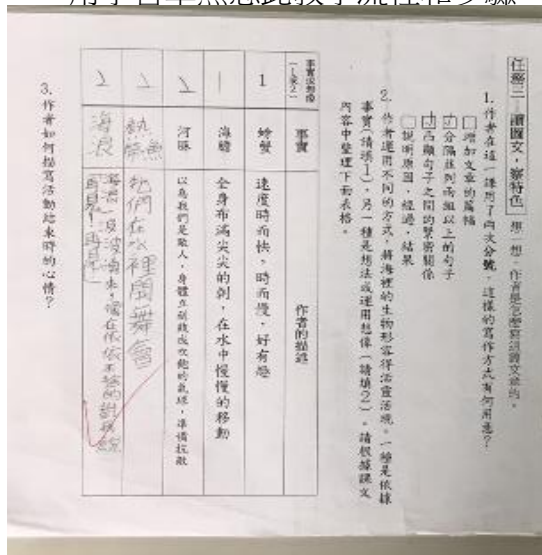 任務二 讀圖文，察特色 想一想，作者是怎麼寫這篇文章的。
1. 作者在這一課用了兩次分號，這樣的寫作方式有何用意？
□增加文章的篇幅
☑分隔並列兩組以上的句子
☑凸顯句子之間的緊密關係
□說明原因、經過、結果
2. 作者運用不同的方式，將海裡的生物形容得活靈活現。一種是依據
事實(請填1)，另一種是想法或運用想像(請填2)。請根據課文
內容中整理下面表格。
事實或想像(1或2) 事實 作者的描述
1 螃蟹 速度時而快，時而慢，好有趣
1 海膽 全身布滿尖尖的刺，在水中慢慢的移動
2 河豚 以為我們是敵人，身體立刻鼓成吹飽的氣球，準備抵敵
2 熱帶魚 牠們在水裡開舞會
2 海浪 海浪一波波湧來，像在依依不捨的對我說
再見！再見
3. 作者如何描寫活動結束時的心情？